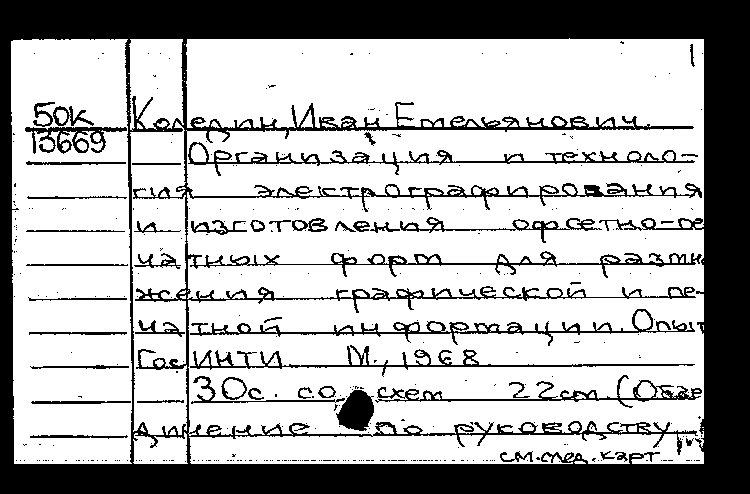 50к Коледин, Иван Емельянович.
13669
Организация и техноло-
гия электрографирования
и изготовления офсетно-пе
чатных форм для размн
жения графической и пе-
чатной информации. Опыт
ГосИНТИ М., 1968
30с. со схем 22см. (Объе
динение по руководству
см. след. карт